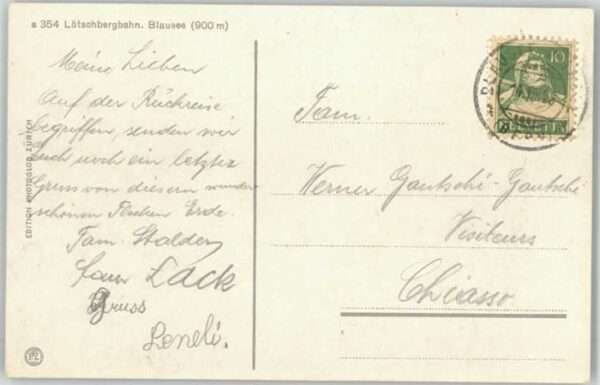 a 354 Lötschbergbahn. Blausee (900 m)
Meine Lieben
Auf der Rückreise
begriffen, senden wir
Euch noch ein letztes
Gruss von diesem wunder
schönen Flecken Erde.
Fam. Stalder
Fam Lack
Gruss
Leneli.
EDITION PHOTOGLOB, ZÜRICH
10
HELVETIA
Fam.
Werner Gautschi-Gautschi
Visiteurs
Chiasso